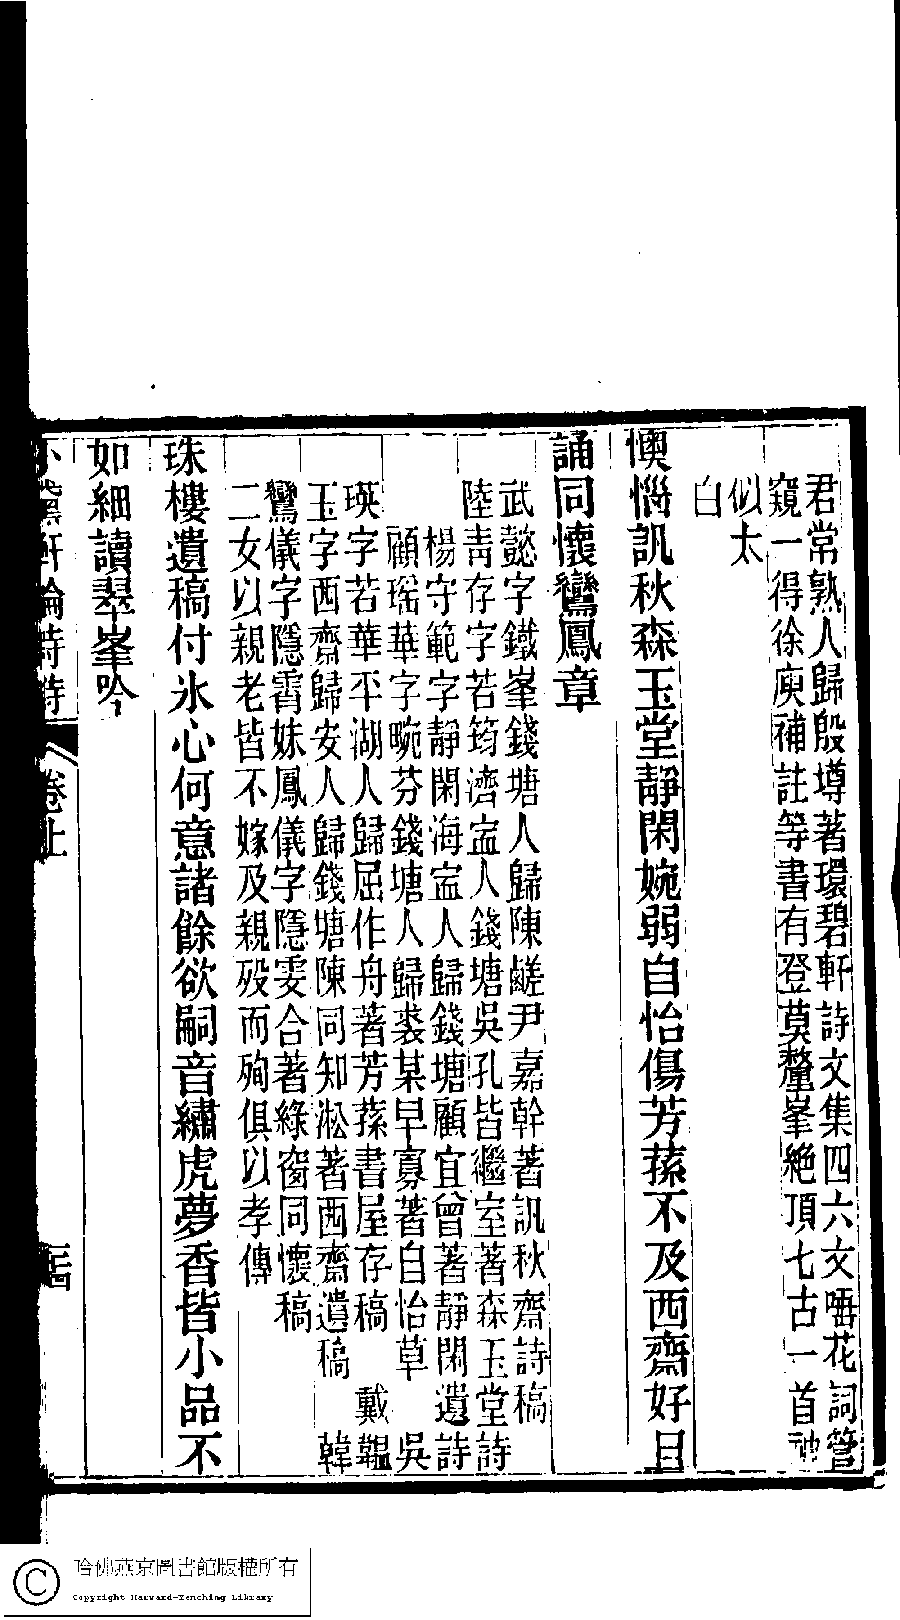 君常熟人歸殷塼著環碧軒詩文集四六文唾花詞管
窺一得徐庾補註等書有登莫釐峯絶頂七古一首神
似太
白
懊惱訊秋森玉堂靜閑婉弱自怡傷芳蓀不及西齋好且
誦同懷鸞鳳章
武懿字鐵峯錢塘人歸陳鹺尹嘉幹著訊秋齋詩稿
陸靑存字若筠濟寍人錢塘吳孔皆繼室著森玉堂詩
楊守範字靜閑海寍人歸錢塘顧宜曾著靜閑遺詩
顧瑶華字畹芬錢塘人歸裘某早寡著自怡草 吳
瑛字若華平湖人歸屈作舟著芳蓀書屋存稿 戴韞
玉字西齋歸安人歸錢塘陳同知淞著西齋遺稿 韓
鸞儀字隱霄妹鳳儀字隱雯合著綠窗同懷稿
二女以親老皆不嫁及親歿而殉俱以孝傳
珠樓遺稿付氷心何意諸餘欲嗣音繡虎夢香皆小品不
如細讀翠峯吟
小黛軒論詩詩 卷上 二古
哈佛燕京圖書館版權所有
Copyright Harvard-Yenching Library